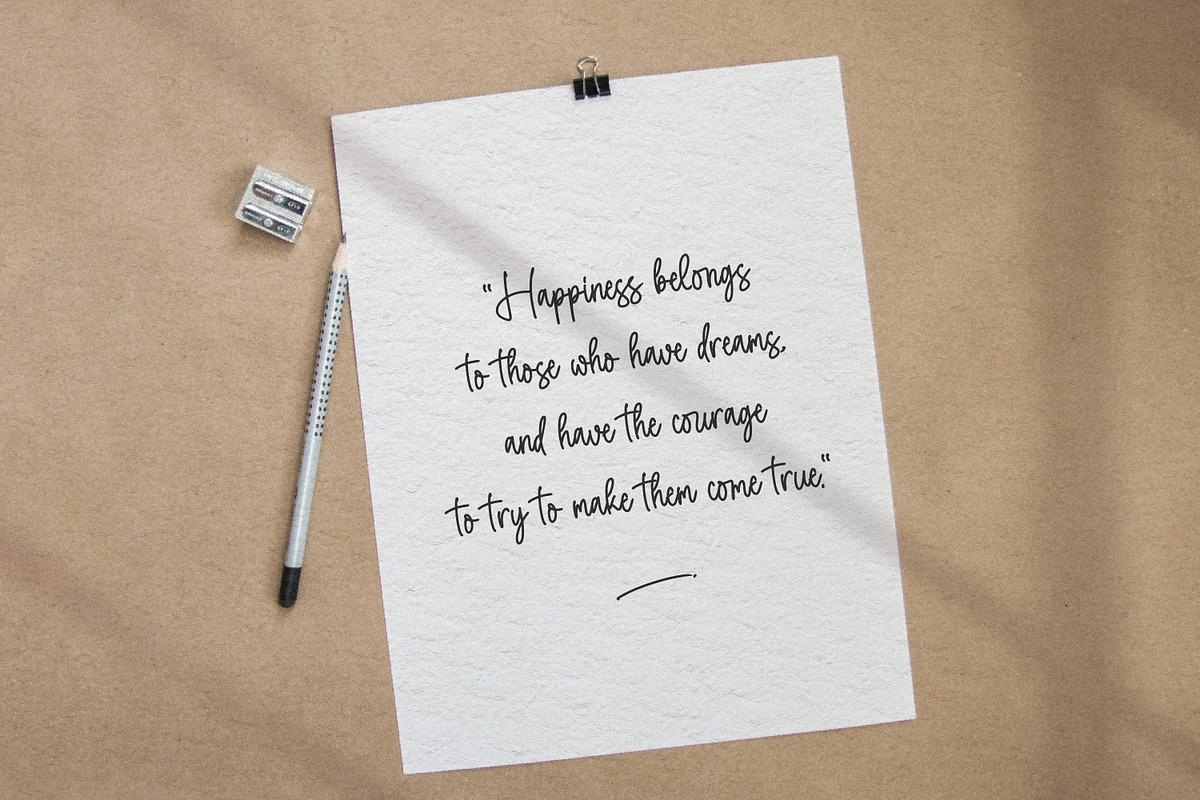 "Happiness belongs
to those who have dreams,
and have the courage
to try to make them come true."